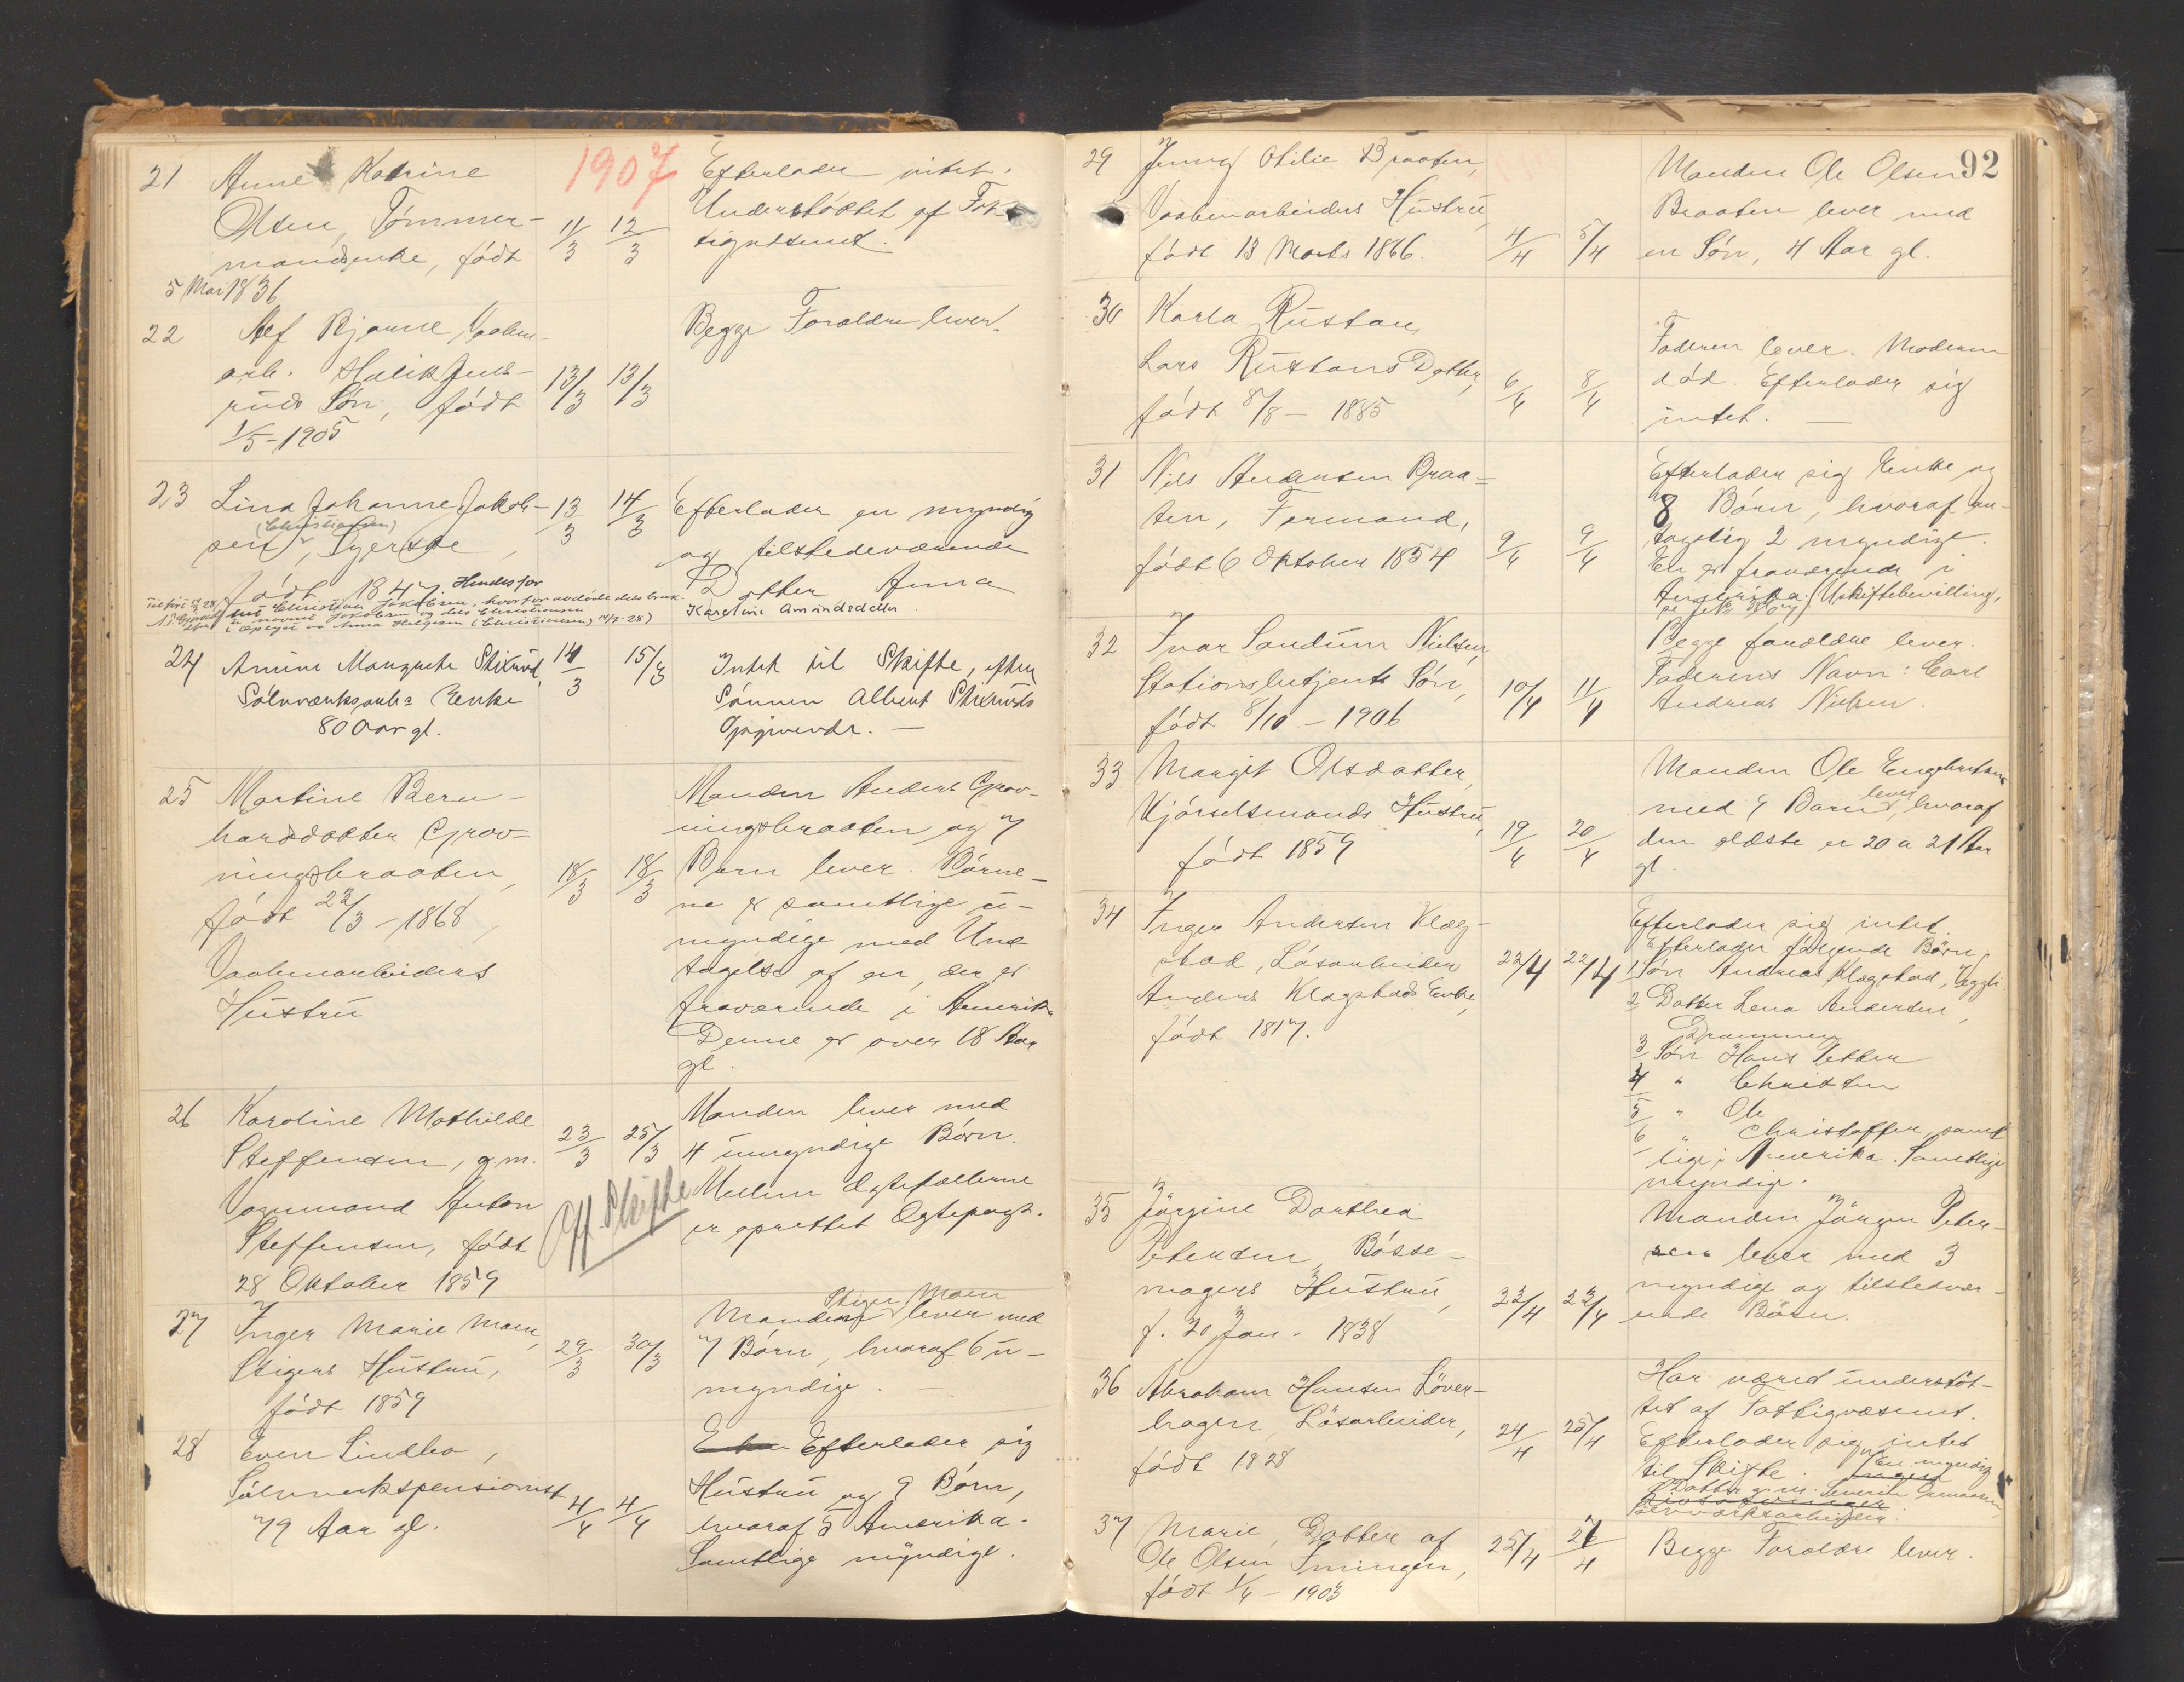 1907
21 Anne Katrine
Olsen, Tømmer-
mandsenke, født
5 Mai 1836
11/3 12/3
Efterlader intet.
Understøttet af Fat-
tigvæsenet.
22 Alf Bjarne, Vaaben-
arb.
ruds Søn, født
1/5-1905
13/3 13/3
Begge Foraldre lever.
23 Lina Johanne Jakob-
(Christiansen)
sen, Syerske
født 1847. Hendes far
13/3 14/3
Efterlader en myndig
og tilstedeværende
Datter Anna
Karoline Amundsdatter
24 Amine Margrethe Skixrud,
Sølvværksarbs Enke
80 Aar gl.
14/3 15/3
Intet til Skifte, efter
Sønnen Albert Skixruds
Opgivende. —
25 Martine Bern-
hardsdatter Grov-
ningsbraaten,
født 22/3-1868,
Vaabenarbeiders
Hustru
18/3 18/3
Manden Anders Grov-
ningsbraaten og 7
Barn lever. Børne-
ne er samtlige u-
myndige med Und-
tagelse af en, der er
fraværende i Amerika
Denne er over 18 Aar
gl.
26 Karoline Mathilde
Steffensen, g.m.
Vognmand Anton
Steffensen, født
28 Oktober 1859
23/3 25/3
Off. Skifte
Manden lever med
4 umyndige Børn.
Mellem Ægtefællerne
er oprettet Ægtepagt.
27 Inger Marie Moen,
Stigers Hustru,
født 1859
29/3 30/3
Stiger Moen
Manden lever med
7 Børn, hvoraf 6 u-
myndige. —
28 Even Lindbo,
Sølvverkspensionist
79 Aar gl.
4/4 4/4
Efterlader sig
Hustru og 9 Børn,
hvoraf 5 Amerika.
Samtlige myndige.
92
29 Jenny Otilie Braaten,
Vaabenarbeiders Hustru,
født 13 Marts 1866.
4/4 5/4
Manden Ole Olsen
Braaten lever med
en Søn, 4 Aar gl.
30 Karla Rustan,
Lars Rustans Datter,
født 8/8 - 1885
6/4 8/4
Faderen lever. Moderen
død. Efterlader sig
intet. —
31 Nils Andersen Braa=
ten, Formand,
født 6 Oktober 1854
9/4 9/4
Efterlader sig Enke og
8 Børn, hvoraf an-
tagelig 2 myndige.
En er fraværende i
Amerika. (Uskiftebevilling,
32 Ivar Sandum Nielsen,
Stationsbetjents Søn,
født 8/10 - 1906
10/4 11/4
Begge forældre lever.
Faderens Navn: Carl
Andreas Nielsen.
33 Margit Olsdatter,
Kjørselsmands Hustru,
født 1859
19/4 20/4
Manden Ole Engebretsen
lever
med 9 Børn, hvoraf
den ældste er 20 a 21 Aar
gl.
34 Inger Andersen Klæg-
stad, Løsarbeider
Anders Klægstads Enke,
født 1817.
22/4 22/4
Efterlader sig intet.
Efterlader følgende Børn,
1 Søn Andreas Klægstad,
2 Datter Lena Andersen,
Drammen
3 Søn Hans Petter
4 " Christen
5 " Ole
6 " Christoffer, samt-
lige i Amerika. Samtlige
myndige.
35 Jørgine Dorthea
Petersen, Bøsse-
magers Hustru,
f. 20 Jan. 1838
22/4 22/4
Manden Jørgen Peter-
sen lever med 3
myndige og tilstedevær-
ende Børn.
36 Abraham Hansen Løver-
hagen, Løsarbeider,
født 1828
24/4 25/4
Har været understøt-
tet af Fattigvæsenet.
Efterlader sig intet
til Skifte. En myndig
Datter g.m. Severin
37 Marie, Datter af
Ole Olsen Imingen,
født 1/4 - 1903
25/4 27/4
Begge Foraldre lever.